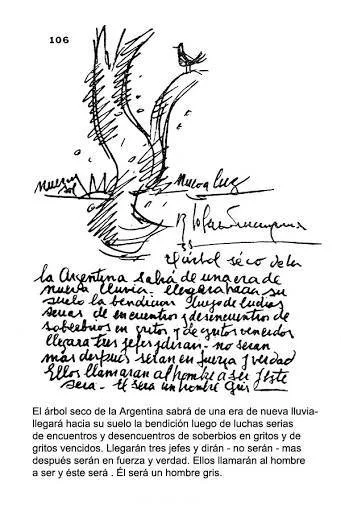 106
nueva sol
nueva luz
B Solari Parravicini
El árbol séco de la
la Argentina sabrá de una era de
nueva lluvia. llegará hacia su
suelo la bendición luego de luchas
serias de encuentros y desencuentros de
soberbios en gritos y de gritos vencidos
llegará tres jefes y dirán - no serán
mas después serán en fuerza y verdad
Ellos llamaran al hombre a ser y éste
sera - El sera un hombre Gris
El árbol seco de la Argentina sabrá de una era de nueva lluvia-
llegará hacia su suelo la bendición luego de luchas serias
de encuentros y desencuentros de soberbios en gritos y de
gritos vencidos. Llegarán tres jefes y dirán - no serán - mas
después serán en fuerza y verdad. Ellos llamarán al hombre
a ser y éste será . Él será un hombre gris.